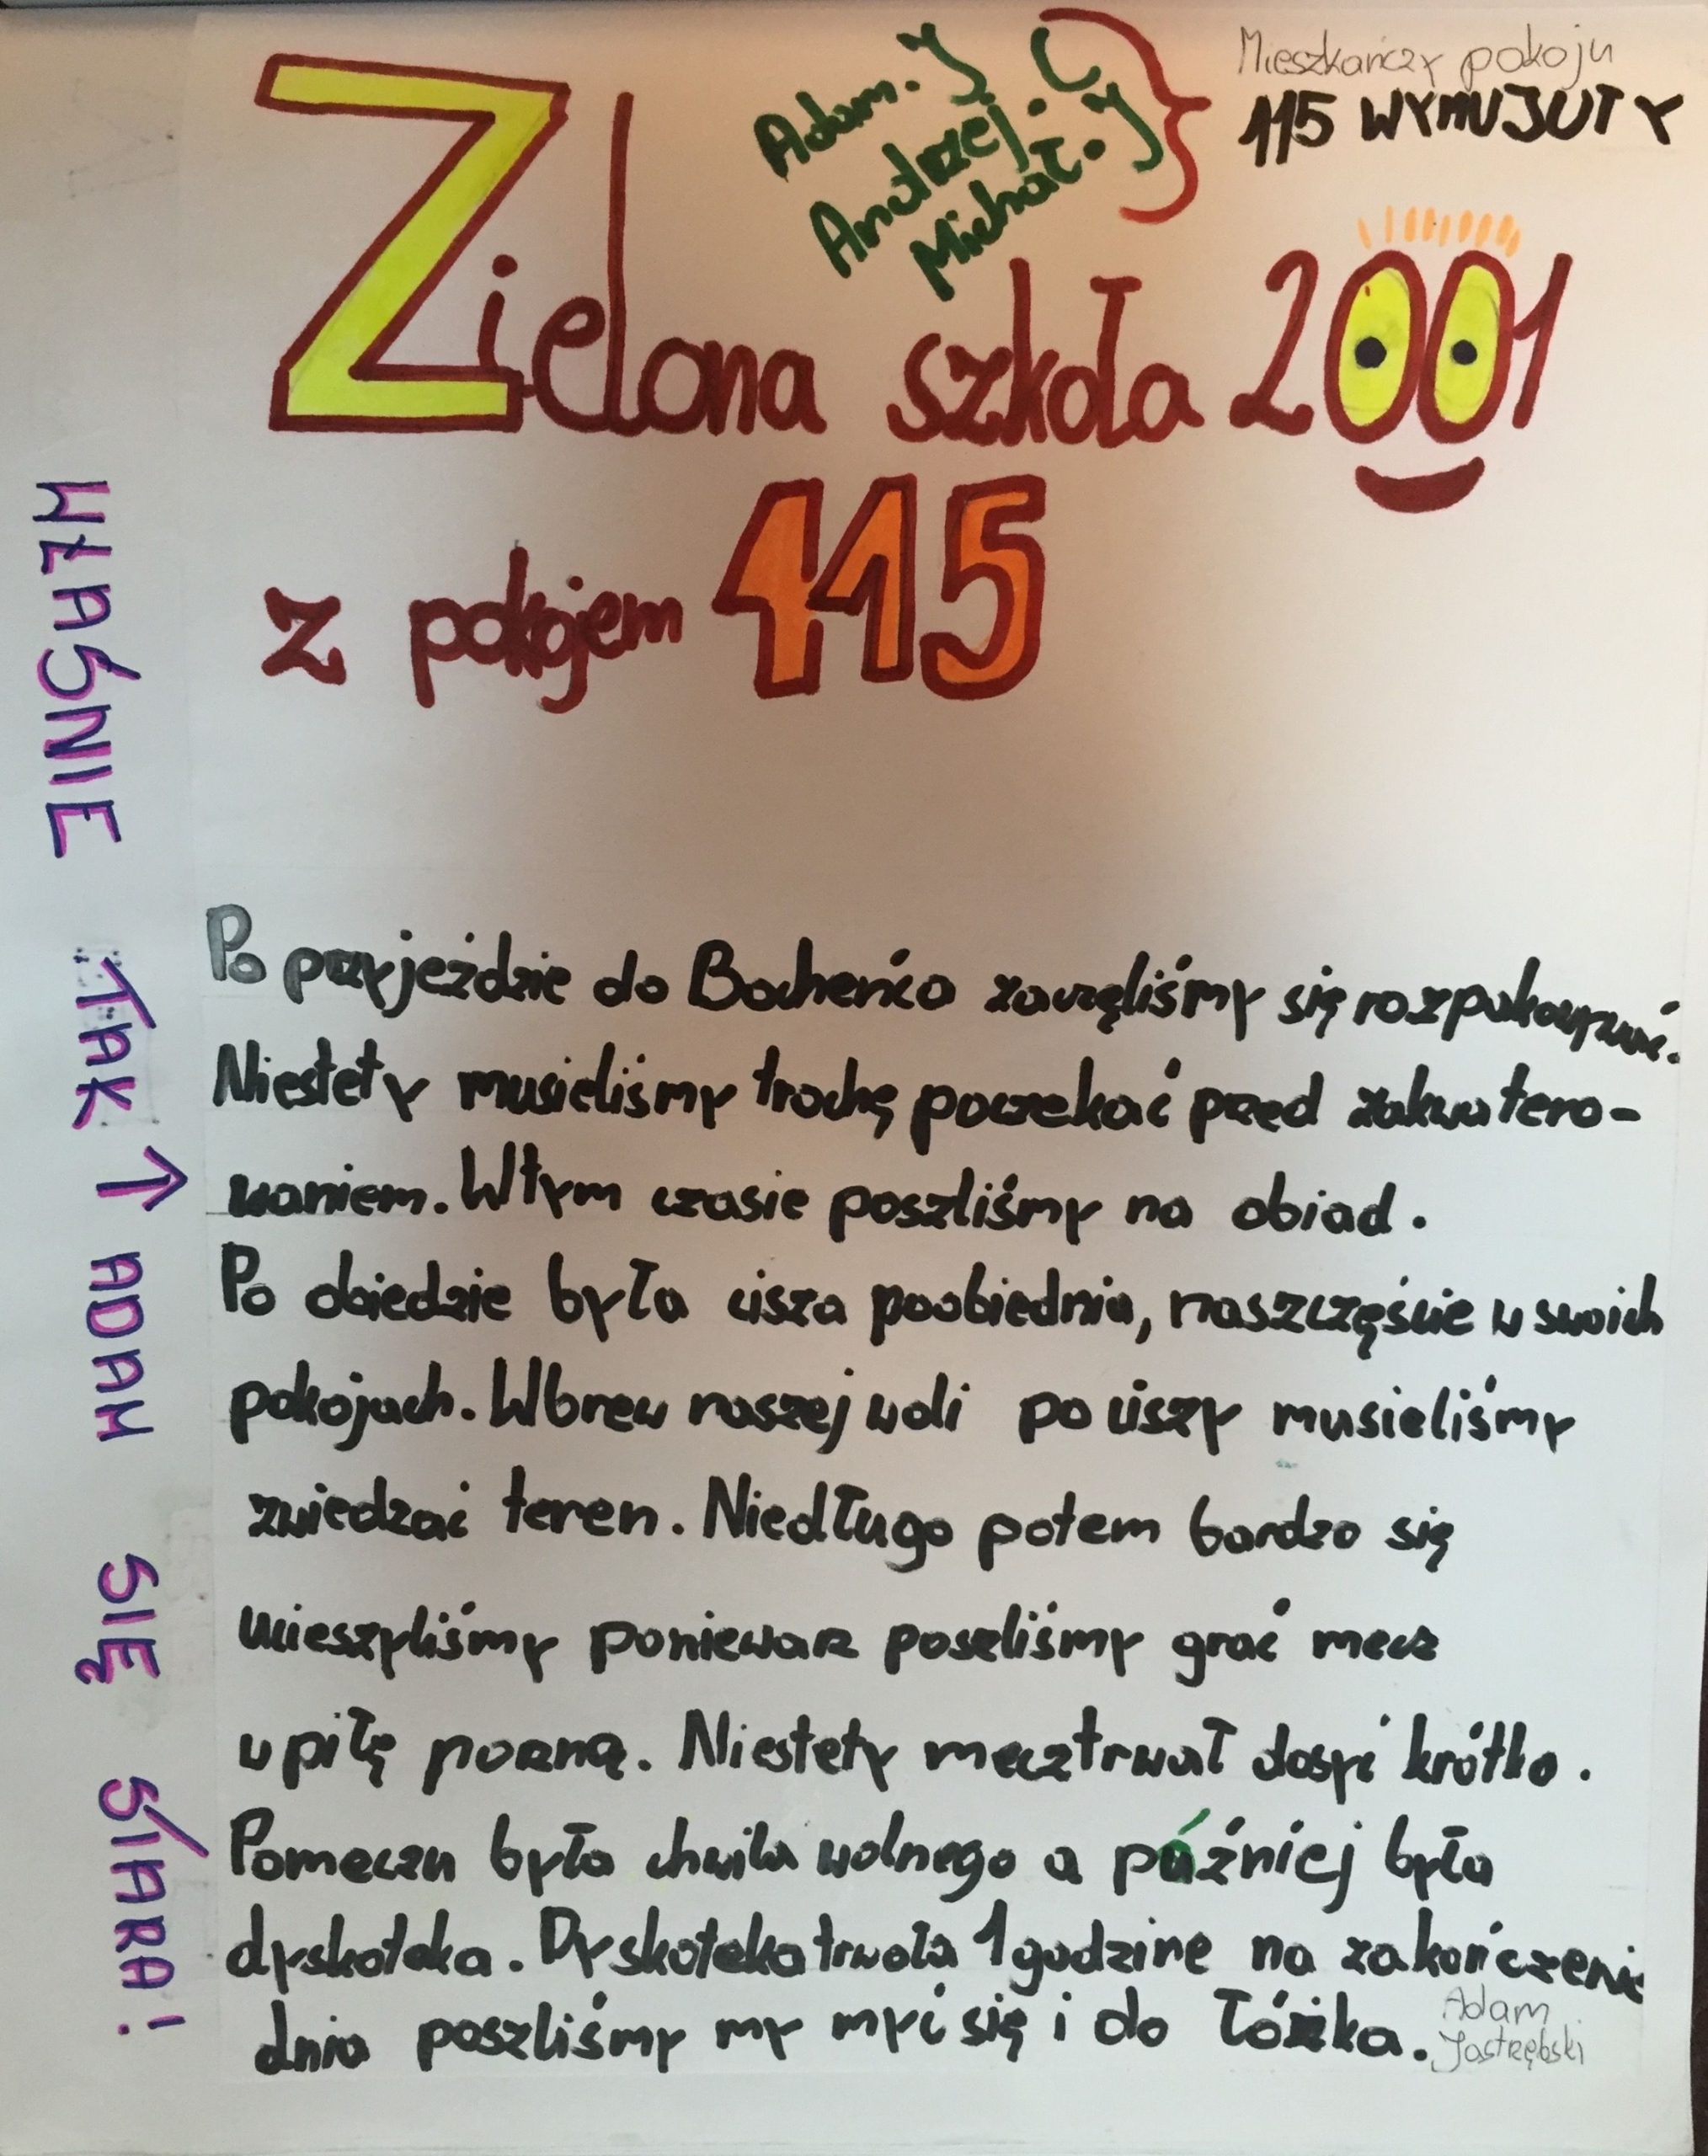 Adam. J
Andrzej. C
Michał. J
Mieszkańczy pokoju
115 WYMUJUTY
Zielona szkoła 2001
z pokojem 115
WŁAŚNIE TAK ↑ ADAM SIĘ SIARA!
Po przyjeździe do Bocheńca zaczęliśmy się rozpakowywać.
Niestety musieliśmy trochę poczekać przed zakwatero-
waniem. W tym czasie poszliśmy na obiad.
Po obiedzie była cisza poobiednia, naszczęście w swoich
pokojach. Wbrew naszej woli po ciszy musieliśmy
zwiedzać teren. Niedługo potem bardzo się
ucieszyliśmy poniewarz poszliśmy grać mecz
w piłę norzną. Niestety mecz trwał dosyć krótko.
Pomeczu była chwila wolnego a później była
dyskoteka. Dyskoteka trwała 1 godzine na zakończenie
dnia poszliśmy my myć się i do łóżka.
Adam
Jastrzębski